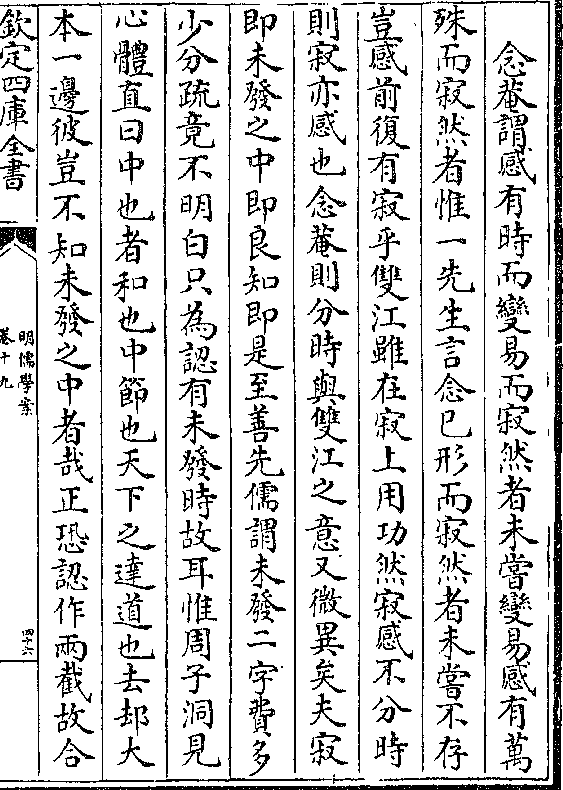 念菴謂感有時而變易而寂然者未嘗變易感有萬
殊而寂然者惟一先生言念已形而寂然者未嘗不存
豈感前復有寂乎雙江雖在寂上用功然寂感不分時
則寂亦感也念菴則分時與雙江之意又微異矣夫寂
即未發之中即良知即是至善先儒謂未發二字費多
少分疏竟不明白只為認有未發時故耳惟周子洞見
心體直曰中也者和也中節也天下之達道也去却大
本一邊彼豈不知未發之中者哉正恐認作兩截故合
欽定四庫全書
明儒學案
卷十九